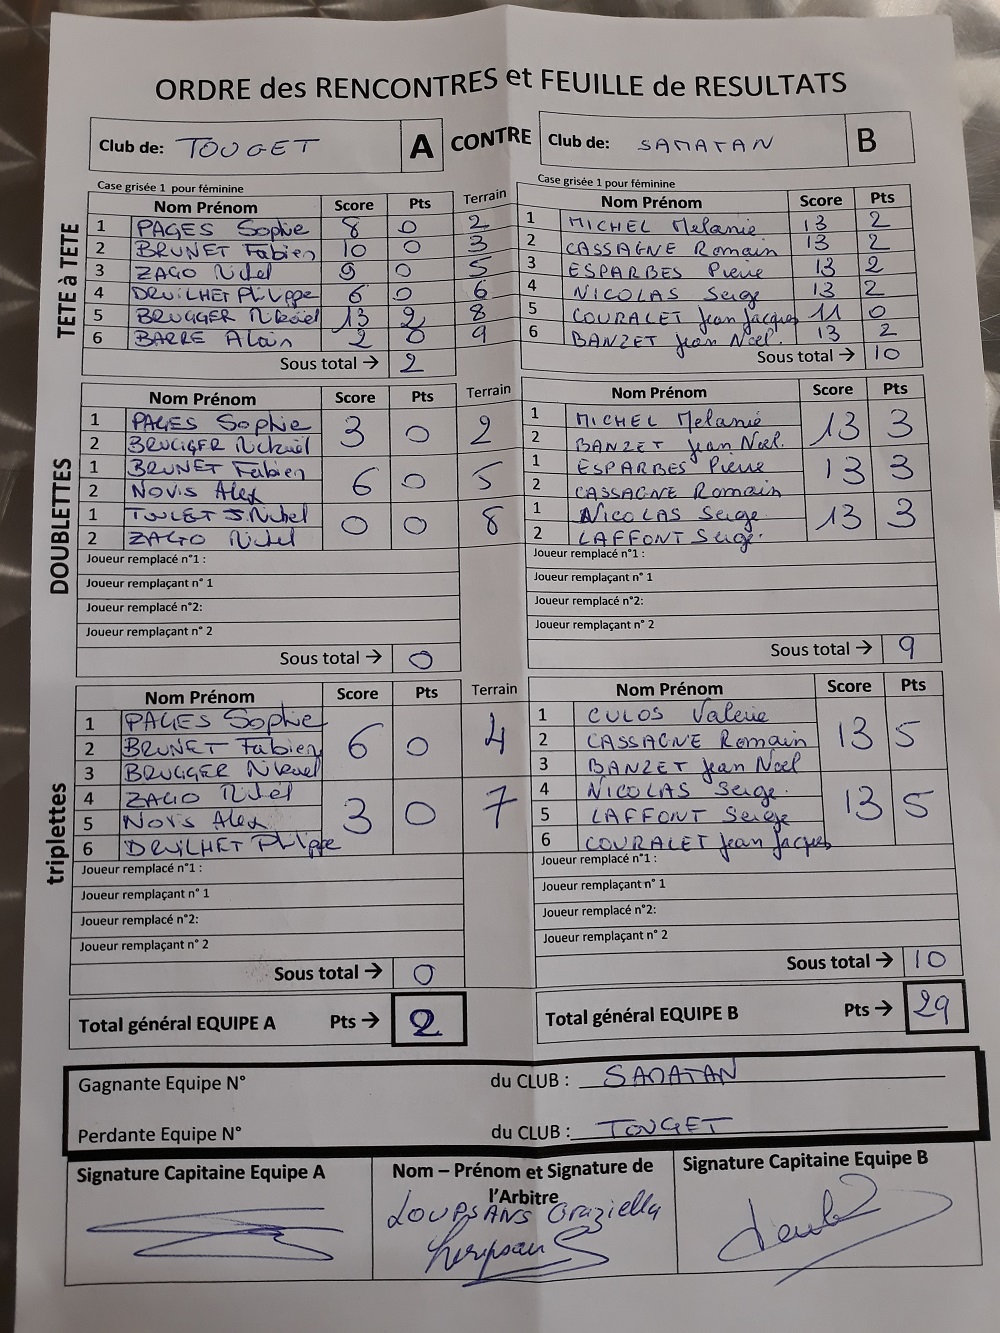 ORDRE des RENCONTRES et FEUILLE de RESULTATS
Club de: TOUGET A CONTRE Club de: SAMATAN B
Case grisée 1 pour féminine Case grisée 1 pour féminine
TETE à TETE
Nom Prénom Score Pts Terrain Nom Prénom Score Pts
1 PAGES Sophie 8 0 2 1 MICHEL Melanie 13 2
2 BRUNET Fabien 10 0 3 2 CASSAGNE Romain 13 2
3 ZAGO Michel 9 0 5 3 ESPARBES Pierre 13 2
4 DRUILHET Philippe 6 0 6 4 NICOLAS Serge 13 2
5 BRUGGER Mickaël 13 2 8 5 COURALET Jean Jacques 11 0
6 BARRE Alain 2 0 9 6 BANZET Jean Noel. 13 2
Sous total → 2 Sous total → 10
DOUBLETTES
Nom Prénom Score Pts Terrain Nom Prénom Score Pts
1 PAGES Sophie 3 0 2 1 MICHEL Melanie 13 3
2 BRUGGER Mickaël 2 BANZET Jean Noel.
1 BRUNET Fabien 6 0 5 1 ESPARBES Pierre 13 3
2 NOVIS Alex 2 CASSAGNE Romain
1 TOULET J.Michel 0 0 8 1 NICOLAS Serge 13 3
2 ZAGO Michel 2 LAFFONT Serge.
Joueur remplacé n°1 : Joueur remplacé n°1 :
Joueur remplaçant n° 1 Joueur remplaçant n° 1
Joueur remplacé n°2: Joueur remplacé n°2:
Joueur remplaçant n° 2 Joueur remplaçant n° 2
Sous total → 0 Sous total → 9
triplettes
Nom Prénom Score Pts Terrain Nom Prénom Score Pts
1 PAGES Sophie 6 0 4 1 CULOS Valerie 13 5
2 BRUNET Fabien 2 CASSAGNE Romain
3 BRUGGER Mickael 3 BANZET Jean Noel
4 ZAGO Michel 3 0 7 4 NICOLAS Serge. 13 5
5 NOVIS Alex 5 LAFFONT Serge
6 DRUILHET Philippe 6 COURALET Jean Jacques
Joueur remplacé n°1 : Joueur remplacé n°1 :
Joueur remplaçant n° 1 Joueur remplaçant n° 1
Joueur remplacé n°2: Joueur remplacé n°2:
Joueur remplaçant n° 2 Joueur remplaçant n° 2
Sous total → 0 Sous total → 10
Total général EQUIPE A Pts → 2 Total général EQUIPE B Pts → 29
Gagnante Equipe N° du CLUB : SAMATAN
Perdante Equipe N° du CLUB : TOUGET
Signature Capitaine Equipe A Nom – Prénom et Signature de l'Arbitre Signature Capitaine Equipe B
LOUPSANS Graziella